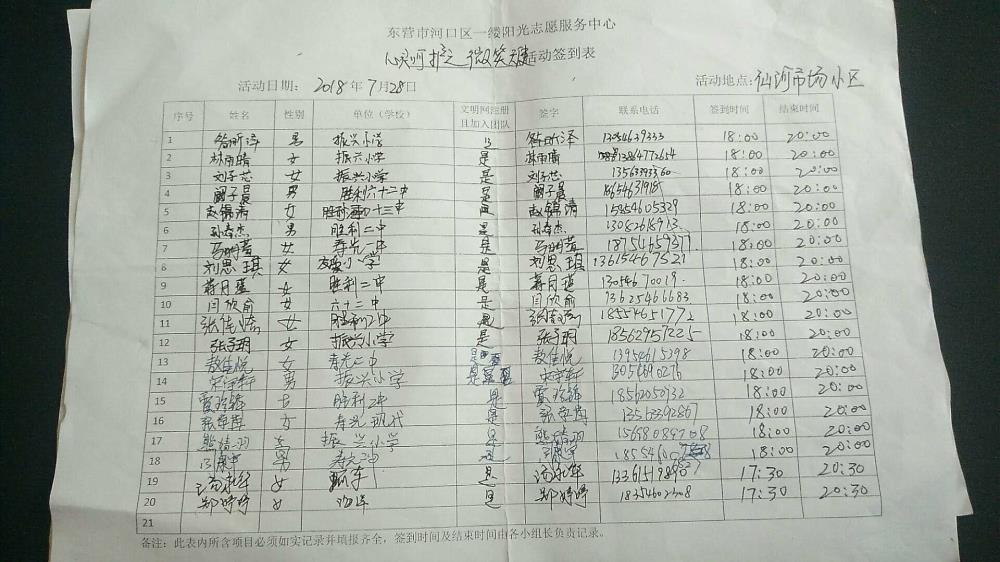 东营市河口区一缕阳光志愿服务中心
心灵呵护之 微笑天使活动签到表
活动日期: 2018年7月28日 活动地点: 仙河市场小区
序号 姓名 性别 单位（学校） 文明网注册且加入团队 签字 联系电话 签到时间 结束时间
1 昝昕泽 男 振兴小学 是 昝昕泽 18:00 20:00
2 林雨晴 女 振兴小学 是 林雨晴 13864772654 18:00 20:00
3 刘子芯 女 振兴小学 是 刘子芯 18:00 20:00
4 阚子晨 男 胜利六十二中 是 阚子晨 18:00 20:00
5 赵锦涛 女 是 赵锦涛 15854605329 18:00 20:00
6 孙春杰 男 胜利二中 是 孙春杰 18:00 20:00
7 马明萱 女 寿光一中 是 马明萱 18754659377 18:00 20:00
8 刘思琪 女 小学 是 刘思琪 13615467521 18:00 20:00
9 蒋月莲 女 胜利二中 是 蒋月莲 13054670019 18:00 20:00
10 闫欣俞 女 六十二中 是 闫欣俞 13625466683 18:00 20:00
11 女 胜利2中 是 18554651772 18:00 20:00
12 张子玥 女 振兴小学 是 张子玥 18562957225 18:00 20:00
13 敖佳悦 女 寿光二中 是 敖佳悦 13954615398 18:00 20:00
14 宋宇轩 男 振兴小学 是 宋宇轩 13054690276 18:00 20:00
15 贾玲锋 女 胜利2中 是 贾玲锋 18562050732 18:00 20:00
16 女 寿光现代 是 13563392867 18:00 20:00
17 熊婧羽 女 振兴小学 是 熊婧羽 15698089708 18:00 20:00
18 男 是 18:00 20:00
19 汤永华 女 是 汤永华 17:30 20:30
20 郑婷婷 女 是 郑婷婷 18354602308 17:30 20:30
21
备注：此表内所含项目必须如实记录并填报齐全，签到时间及结束时间由各小组长负责记录。